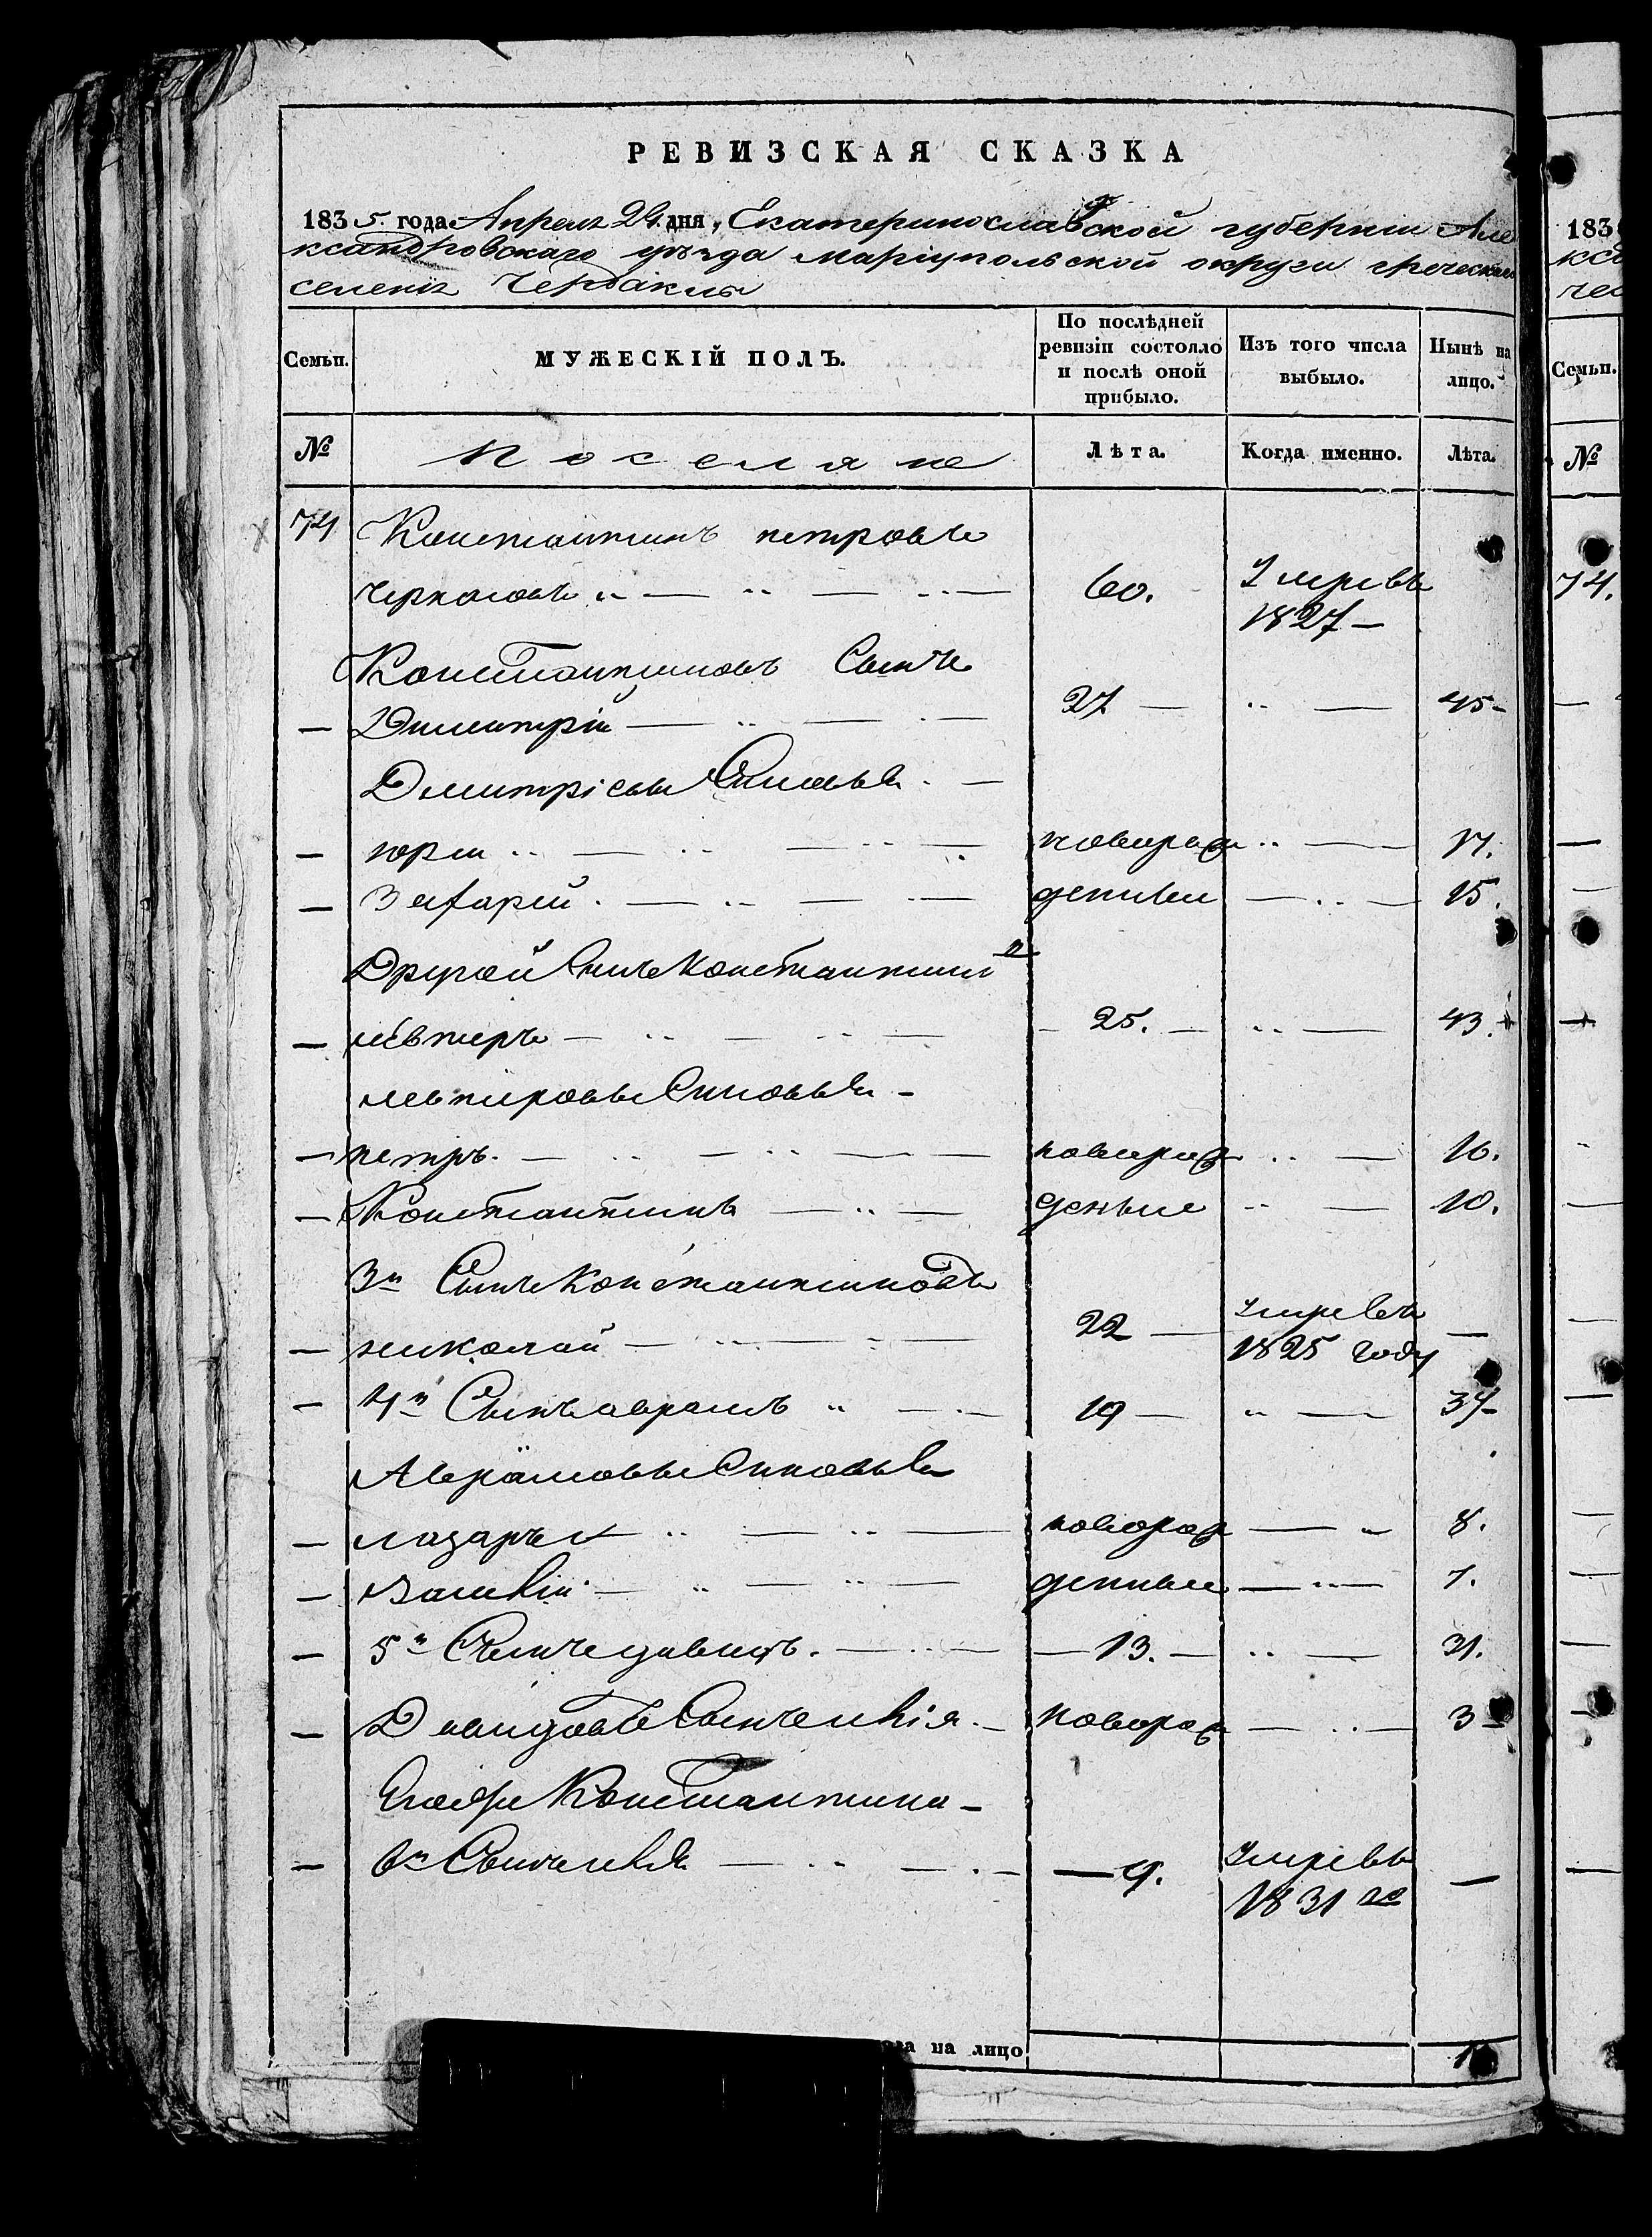 РЕВИЗСКАЯ СКАЗКА
1835. года Апреля 24. дня, Екатеринославской губернии Але
ксандровскаго уѣзда маріупольской округи греческаго
селенія Чердакли
Семьи. МУЖЕСКІЙ ПОЛЪ. По послѣдней ревизіи состояло и послѣ оной прибыло. Изъ того числа выбыло. Нынѣ на лицо.
№ Поселяне Лѣта. Когда именно. Лѣта.
74 Константинъ петровъ
60. Умревъ
1827 –
Константиновъ Сынъ
– Димитрій — 27 — 45 –
Дмитріевы Сыновья. –
– юри — новорож 17.
– Захарій. — денныи 15.
Другой Сынъ Константинп
– — 25. — 43.
Сыновья –
– петръ. — новорож 16.
– Константинъ — денные 10.
3й Сынъ Константиновъ
– николай — 22 — умревъ
1825 году —
– 4й Сынъ аврамъ — 19 — 37 –
Аврамовы Сыновья
– лазарь — новорож — 8.
– Василій — денные — 7.
– 5й Сынъ давидъ. — 13. — 31.
– Давидовъ Сынъ илія. – новорож — 3 –
Константина –
– 6й Сынъ илья — 9. Умревъ
1831 го —
на лицо
183
№
74.
Семьи.